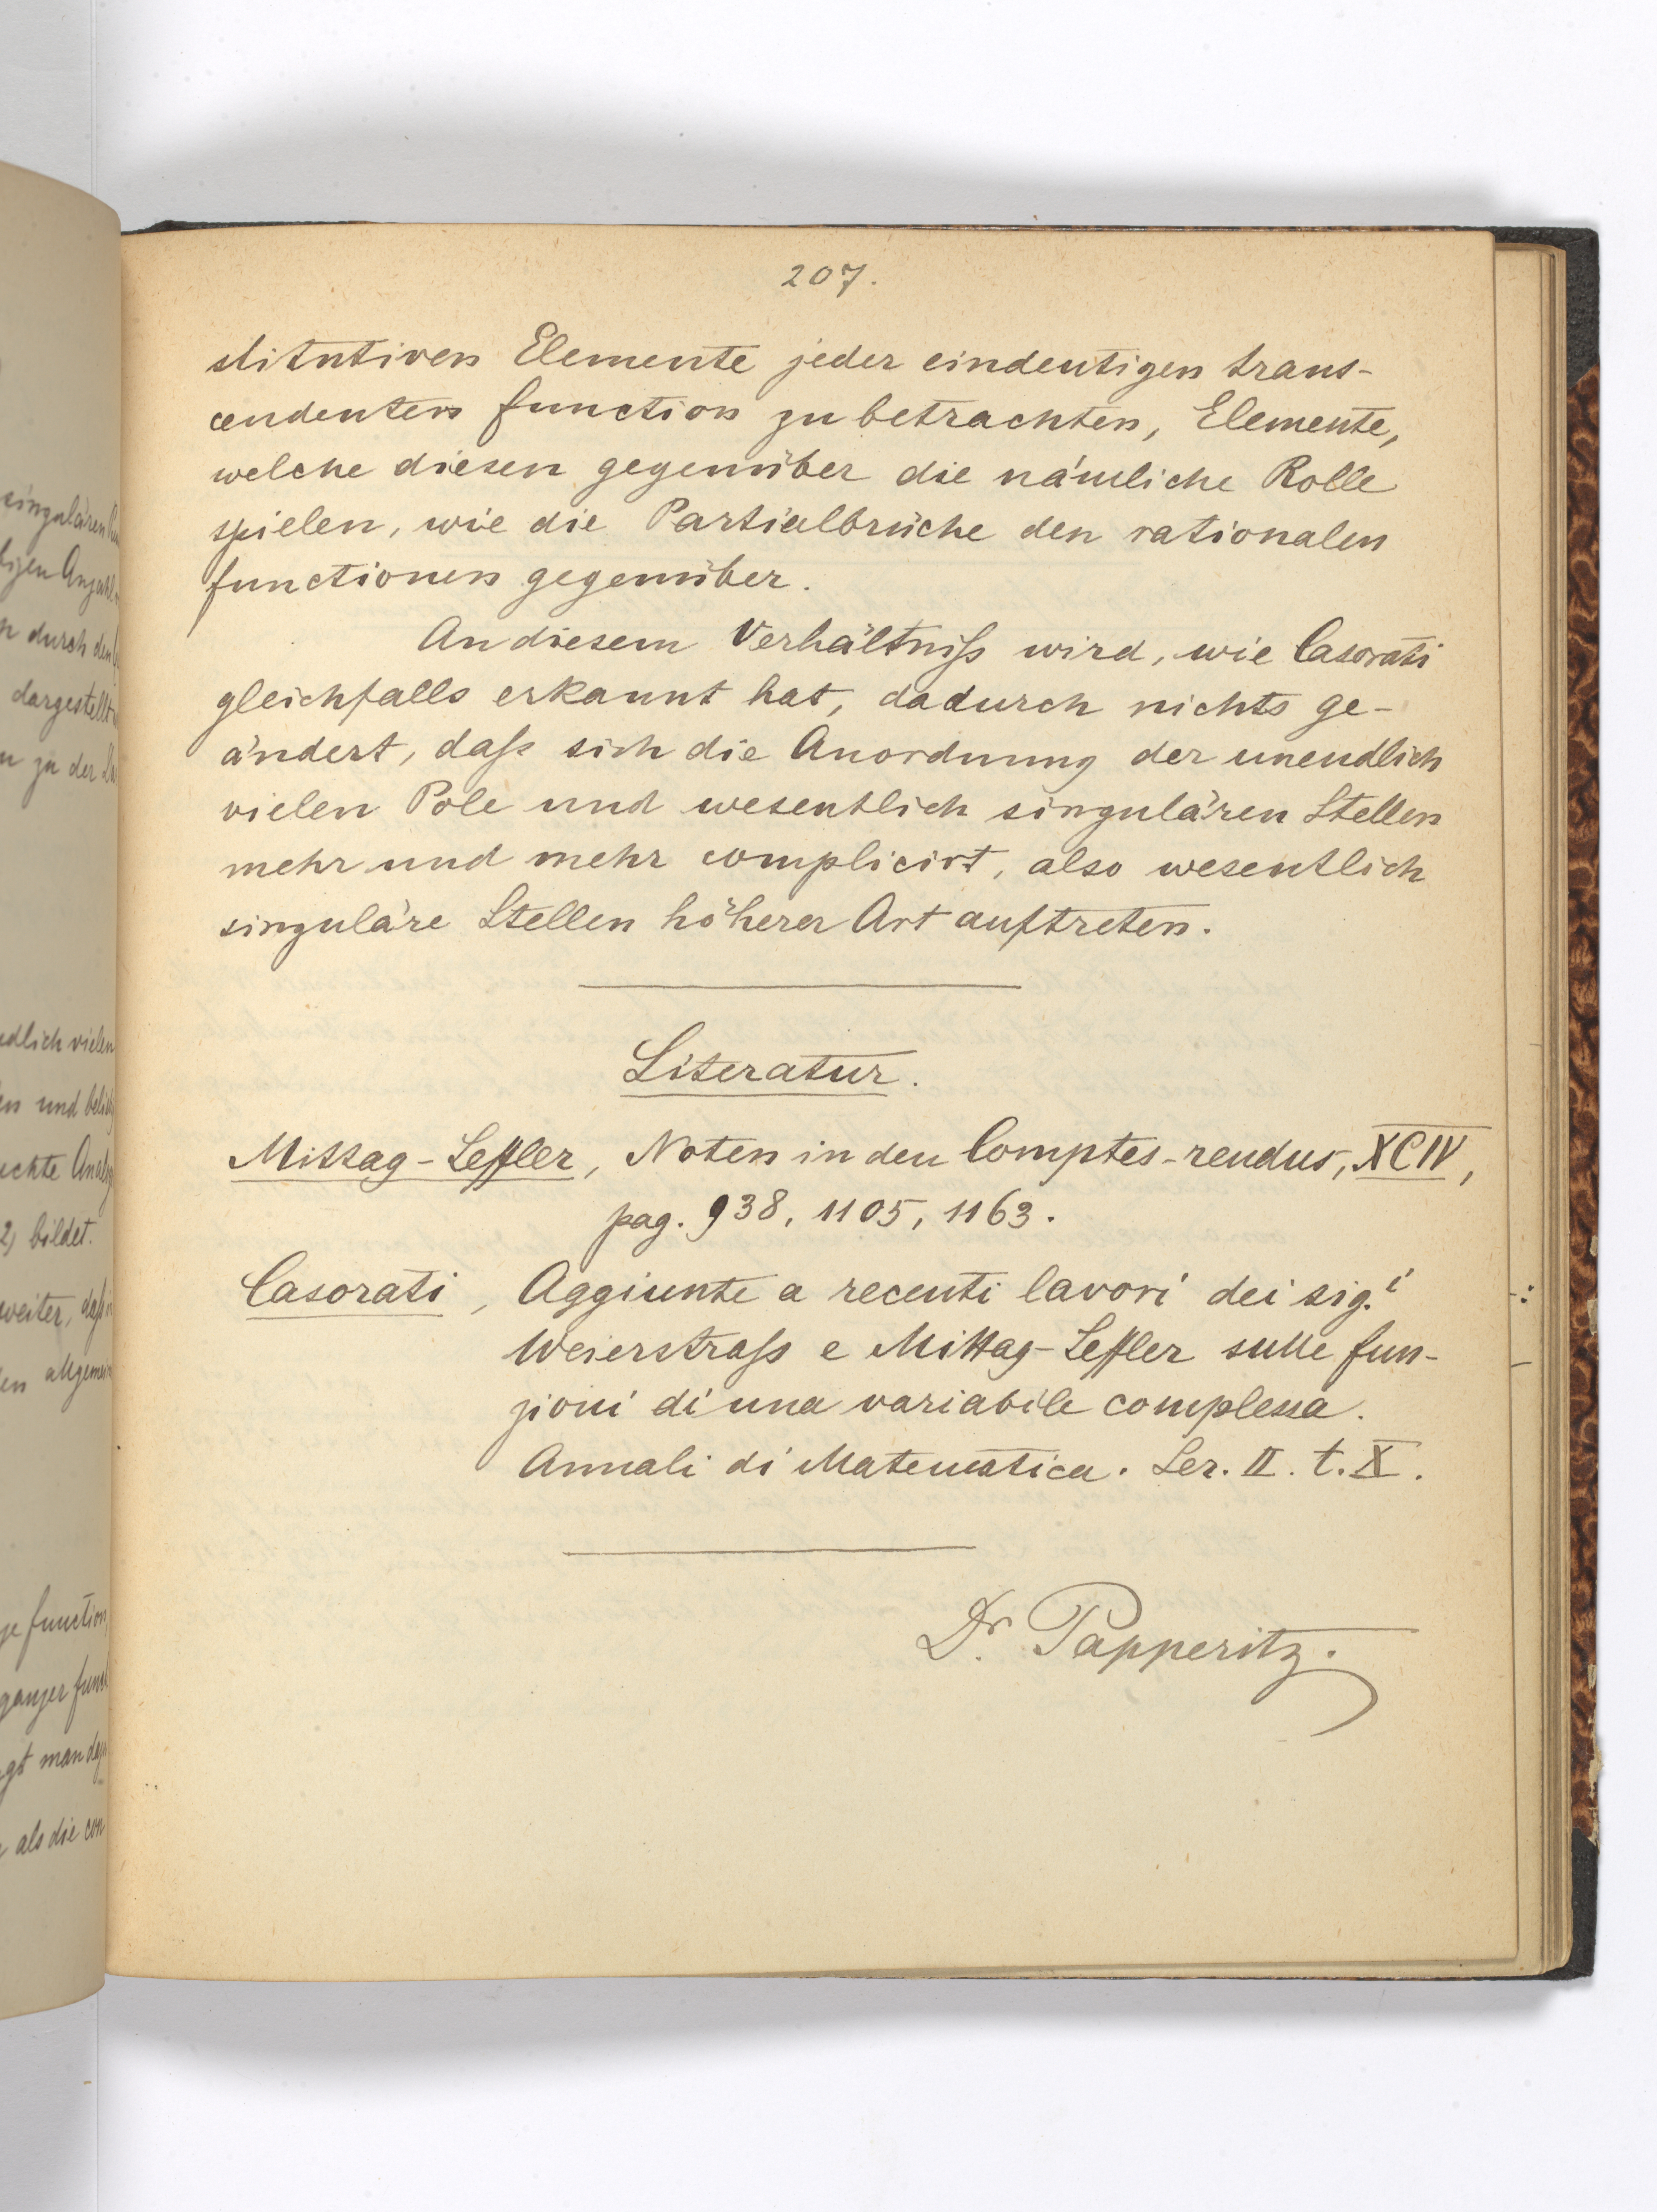 207.
stitutiven Elemente jeder eindeutigen trans-
cendenten function zu betrachten, Elemente,
welche diesen gegenüber die nämliche Rolle
spielen, wie die Partialbrüche den rationalen
functionen gegenüber.
An diesem Verhältniß wird, wie Casorati
gleichfalls erkannt hat, dadurch nichts ge-
ändert, daß sich die Anordnung der unendlich
vielen Pole und wesentlich singulären Stellen
mehr und mehr complicirt, also wesentlich
singuläre Stellen höherer Art auftreten.
Literatur.
Mittag-Leffler, Noten in den Comptes-rendus, XCIV,
pag. 938, 1105, 1163.
Casorati, Aggiunte a recenti lavori dei sig.i
Weierstraß e Mittag-Leffler sulle fun-
zioni di una variabile complessa.
Annali di Matematica. Ser. II. t. X.
Dr. Papperitz.
singulären
durch den
dargestellt
zu der
dlich vielen
und
2) bildet.
weiter, daß
function
ganzer
man
als die con